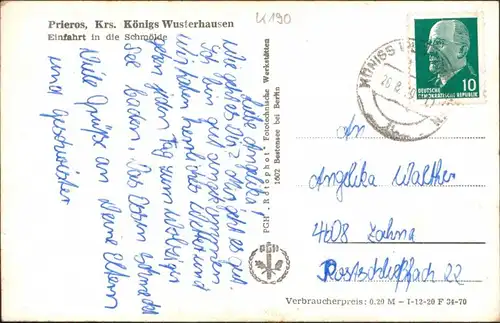 Prieros, Krs. Königs Wusterhausen
Einfahrt in die Schmölde
K190
Liebe Angelika!
Wie geht es Dir? Mir geht es gut.
Ich bin gut angekommen.
Wir haben herrliches Wetter und
gern jeden Tag zum Wolziger
See baden. Das Essen schmeckt
Viele Grüße an Deine Eltern
und Geschwister
PGH „Rotophot“ Fototechnische Werkstätten
1602 Bestensee bei Berlin
PGH
DEUTSCHE
DEMOKRATISCHE REPUBLIK
10
KÖNIGS
26.8.
An
Angelika Walther
4608 Zahna
Postschließfach 22
Verbraucherpreis: 0.20 M – I-12-20 F 34-70